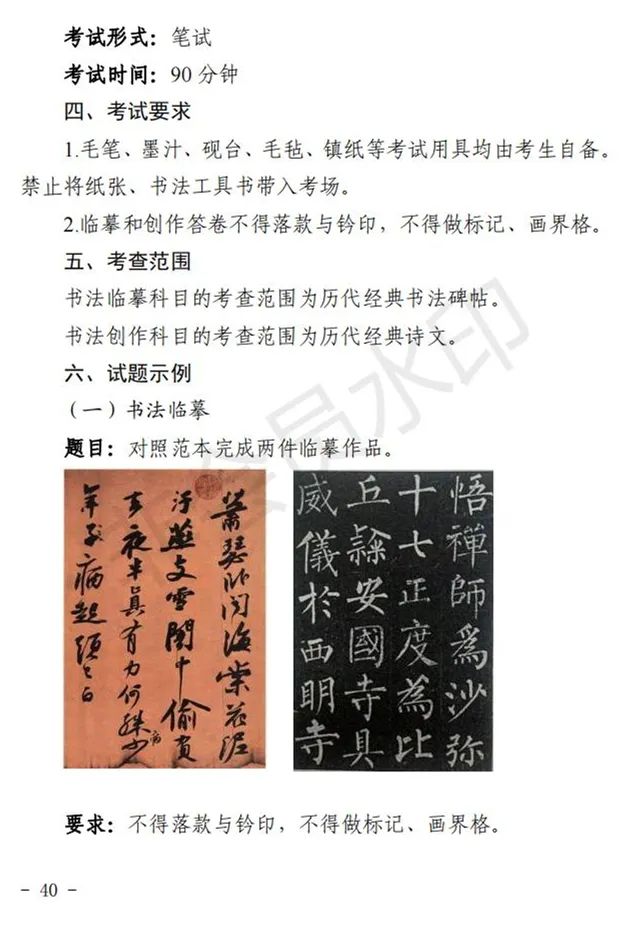 考试形式：笔试
考试时间：90分钟
四、考试要求
1.毛笔、墨汁、砚台、毛毡、镇纸等考试用具均由考生自备。
禁止将纸张、书法工具书带入考场。
2.临摹和创作答卷不得落款与钤印，不得做标记、画界格。
五、考查范围
书法临摹科目的考查范围为历代经典书法碑帖。
书法创作科目的考查范围为历代经典诗文。
六、试题示例
（一）书法临摹
题目：对照范本完成两件临摹作品。
蕭瑟卧聞海棠花泥
汙燕支雪闇中偷負
去夜半真有力何殊少
年子病起頭已白
悟禪師爲沙弥
十七正度為比
丘隸安國寺具
威儀於西明寺
要求：不得落款与钤印，不得做标记、画界格。
- 40 -
非会员水印